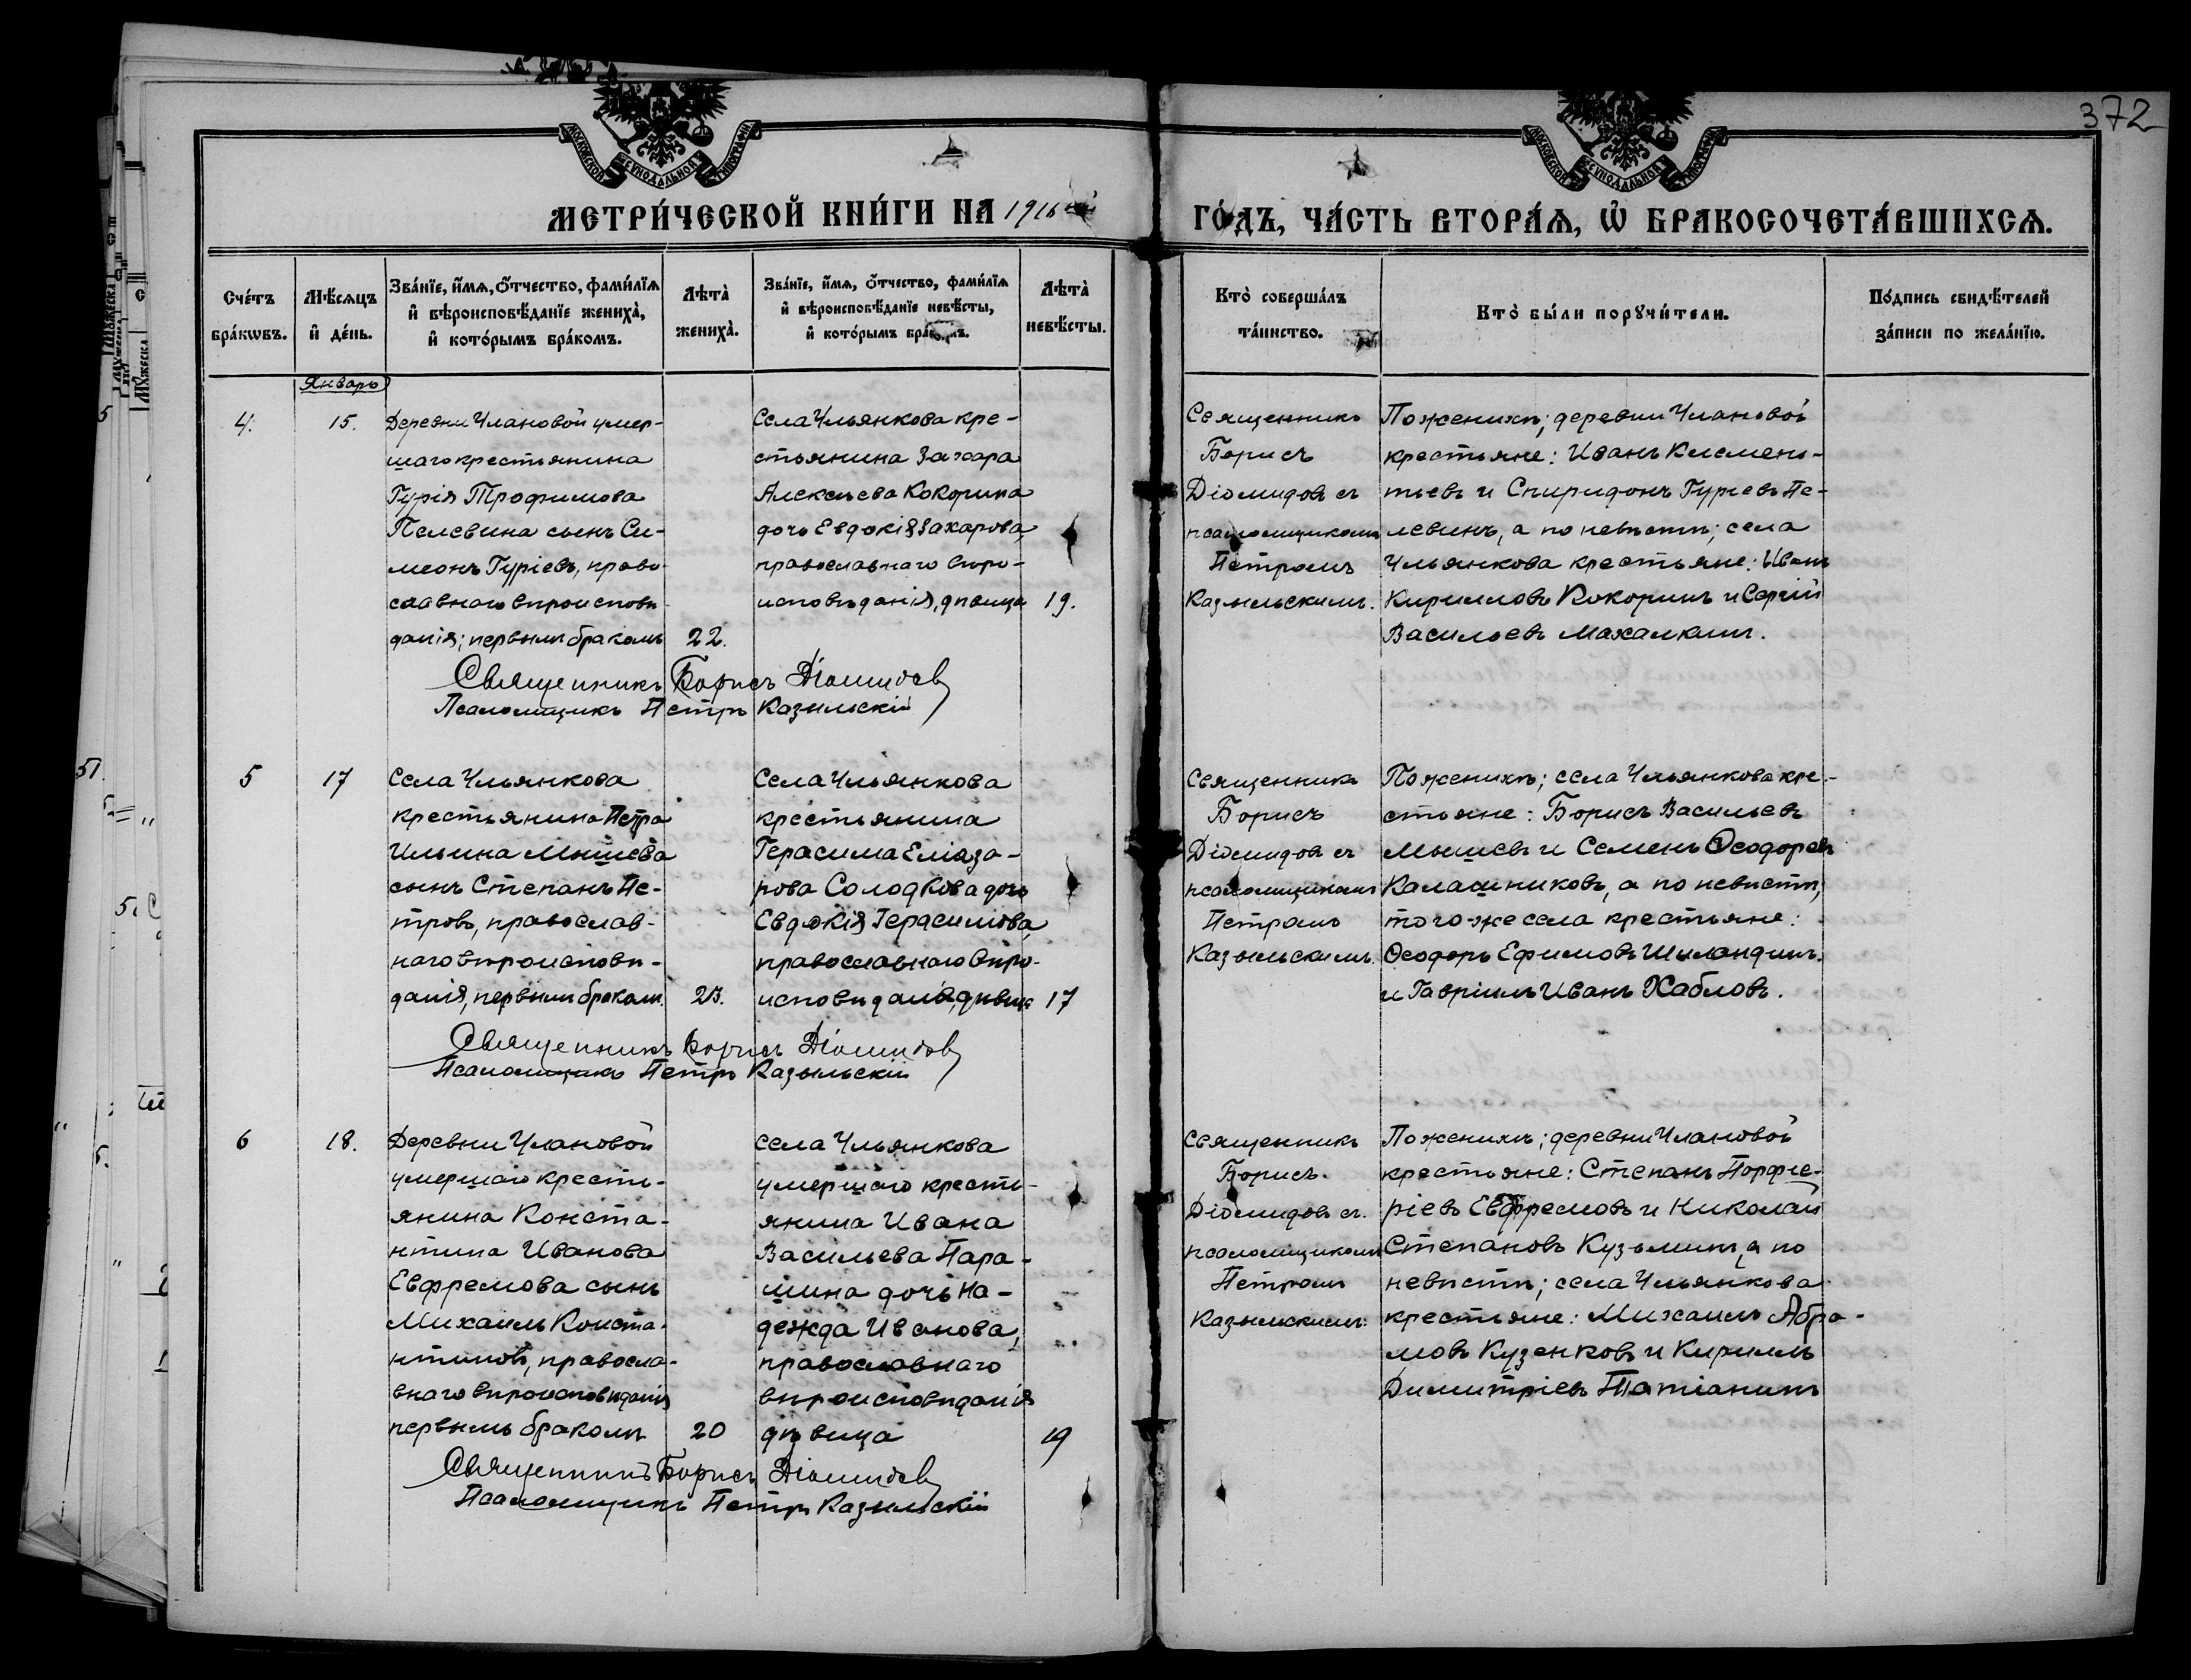 372
МОСКОВСКОЙ СѴНОДАЛЬНОЙ ТИПОГРАФІИ
МОСКОВСКОЙ СѴНОДАЛЬНОЙ ТИПОГРАФІИ
МЕТРИ́ЧЕСКОЙ КНИ́ГИ НА 1916 ГО́ДЪ, ЧА́СТЬ ВТОРА́Ѧ, Ѡ҆ БРАКОСОЧЕТА́ВШИХСѦ.
Сче́тъ бра́кѡвъ.
Мѣ́сѧцъ и҆ де́нь.
Зва́нїе, и҆́мѧ, ѻ҆́тчество, фами́лїѧ
и҆ вѣроисповѣ́данїе жениха̀,
и҆ кото́рымъ бра́комъ.
Лѣта̀ жениха̀.
Зва́нїе, и҆́мѧ, ѻ҆́тчество, фами́лїѧ
и҆ вѣроисповѣ́данїе невѣ́сты,
и҆ кото́рымъ бра́комъ.
Лѣта̀ невѣ́сты.
Кто̀ соверша́лъ
та́инство.
Кто̀ бы́ли порꙋчи́тели.
По́дпись свидѣ́телей
за́писи по жела́нїю.
Январь
4.
15.
Деревни Улановой умер-
шаго крестьянина
Гурія Трофимова
Пелевина сынъ Си-
меонъ Гуріевъ, право-
славнаго вѣроисповѣ-
данія; первымъ бракомъ
22.
Села Ульянкова кре-
стьянина Захара
Алексѣева Кокорина
дочь Евдокія Захарова,
православнаго вѣро-
исповѣданія, дѣвица
19.
Священникъ
Борисъ
Діомидовъ съ
псаломщикомъ
Петромъ
Казыльскимъ.
По женихѣ; деревни Улановой
крестьяне: Иванъ Клемень-
тьевъ и Спиридонъ Гуріевъ Пе-
левинъ, а по невѣстѣ; села
Ульянкова крестьяне: Иванъ
Кирилловъ Кокоринъ и Сергій
Васильевъ Махалкинъ.
Священникъ Борисъ Діомидовъ
Псаломщикъ Петръ Казыльскій
5
17
Села Ульянкова
крестьянина Петра
Ильина Мышева
сынъ Степанъ Пе-
тровъ, православ-
наго вѣроисповѣ-
данія, первымъ бракомъ.
23.
Села Ульянкова
крестьянина
Герасима Еліаза-
рова Солодкова дочь
Евдокія Герасимова,
православнаго вѣро-
исповѣданія, дѣвица
17
Священникъ
Борисъ
Діомидовъ съ
псаломщикомъ
Петромъ
Казыльскимъ.
По женихѣ; села Ульянкова кре-
стьяне: Борисъ Васильевъ
Мышевъ и Семенъ Ѳеодоровъ
Калашниковъ, а по невѣстѣ;
того-же села крестьяне:
Ѳеодоръ Ефимовъ Шиландинъ.
и Гавріилъ Иванъ Хабловъ.
Священникъ Борисъ Діомидовъ
Псаломщикъ Петръ Казыльскій
6
18.
Деревни Улановой
умершаго кресть-
янина Конста-
нтина Иванова
Евфремова сынъ
Михаилъ Конста-
нтиновъ, правосла-
внаго вѣроисповѣданія
первымъ бракомъ
20
Села Ульянкова
умершаго кресть-
янина Ивана
Васильева Пара-
шина дочь На-
дежда Иванова,
православнаго
вѣроисповѣданія
дѣвица
19
Священникъ
Борисъ.
Діомидовъ съ.
псаломщикомъ
Петромъ
Казыльскимъ:
По женихѣ; деревни Улановой
крестьяне: Степанъ Порфи-
ріевъ Евфремовъ и Николай
Степановъ Кузьминъ, а по
невѣстѣ; села Ульянкова
крестьяне: Михаилъ Абра-
мовъ Кузенковъ и Кириллъ
Димитріевъ Татіанинъ
Священникъ Борисъ Діомидовъ
Псаломщикъ Петръ Казыльскій